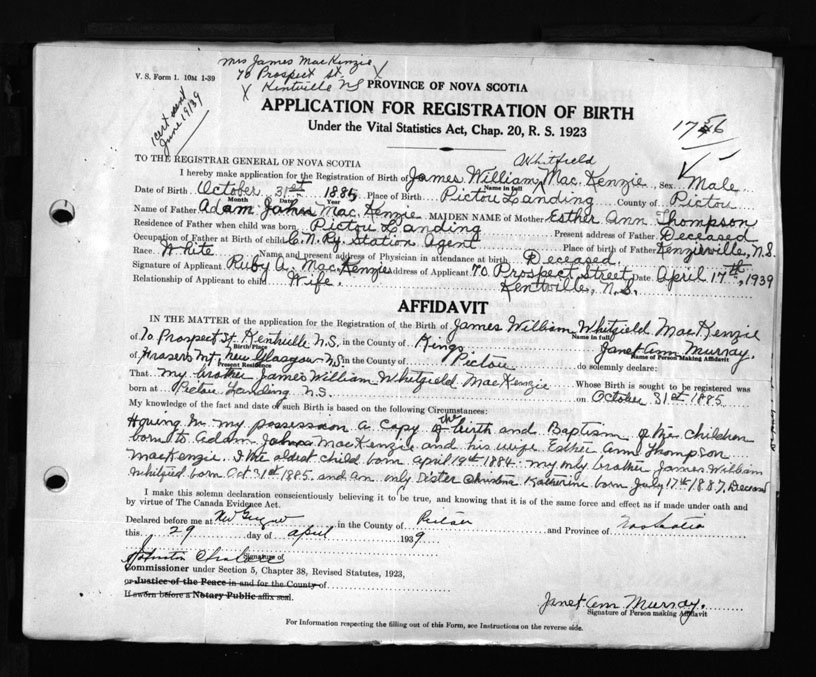 Mrs James MacKenzie
V. S. Form 1. 10M 1-39
70 Prospect St
Kentville NS
PROVINCE OF NOVA SCOTIA
APPLICATION FOR REGISTRATION OF BIRTH
Under the Vital Statistics Act, Chap. 20, R. S. 1923
Cert sent
June 19/39
TO THE REGISTRAR GENERAL OF NOVA SCOTIA
Whitfield
I hereby make application for the Registration of Birth of James William Mac. Kenzie Sex Male
Name in full
Date of Birth October 31st 1885 Place of Birth Pictou Landing County of Pictou
Month Date Year
Name of Father Adam John Mac. Kenzie MAIDEN NAME of Mother Esther Ann Thompson
Residence of Father when child was born Pictou Landing Present address of Father Deceased
Occupation of Father at Birth of child C. N. Ry. Station Agent Place of birth of Father Kenzieville, N.S.
Race. White Name and present address of Physician in attendance at birth Deceased.
Signature of Applicant Ruby A. Mac. Kenzie Address of Applicant 70 Prospect Street, Date April 17th, 1939
Relationship of Applicant to child Wife. Kentville, N.S.
AFFIDAVIT
IN THE MATTER of the application for the Registration of the Birth of James William Whitfield MacKenzie
Name in full
of 70 Prospect St. Kentville N.S. in the County of Kings Janet Ann Murray.
Birth Place Name of Person Making Affidavit
of Frasers Mt, New Glasgow N.S in the County of Pictou do solemnly declare:
Present Residence
That my brother James William Whitfield MacKenzie Whose Birth is sought to be registered was
born at Pictou Landing N.S. on October 31st 1885
My knowledge of the fact and date of such Birth is based on the following Circumstances:
Having in my possession a Copy of the birth and Baptism of the Children
born to Adam John MacKenzie and his wife Esther Ann Thompson
MacKenzie. I the oldest child born April 19th 1884. my only brother James William
Whitfield born Oct 31st 1885 and an only sister Christena Katherine born July 17th 1887,
I make this solemn declaration conscientiously believing it to be true, and knowing that it is of the same force and effect as if made under oath and
by virtue of The Canada Evidence Act.
Declared before me at in the County of Pictou and Province of Nova Scotia
this 29 day of April 1939
Signature of
Commissioner under Section 5, Chapter 38, Revised Statutes, 1923,
or Justice of the Peace in and for the County of
If sworn before a Notary Public affix seal.
Janet Ann Murray.
Signature of Person making Affidavit
For Information respecting the filling out of this Form, see Instructions on the reverse side.